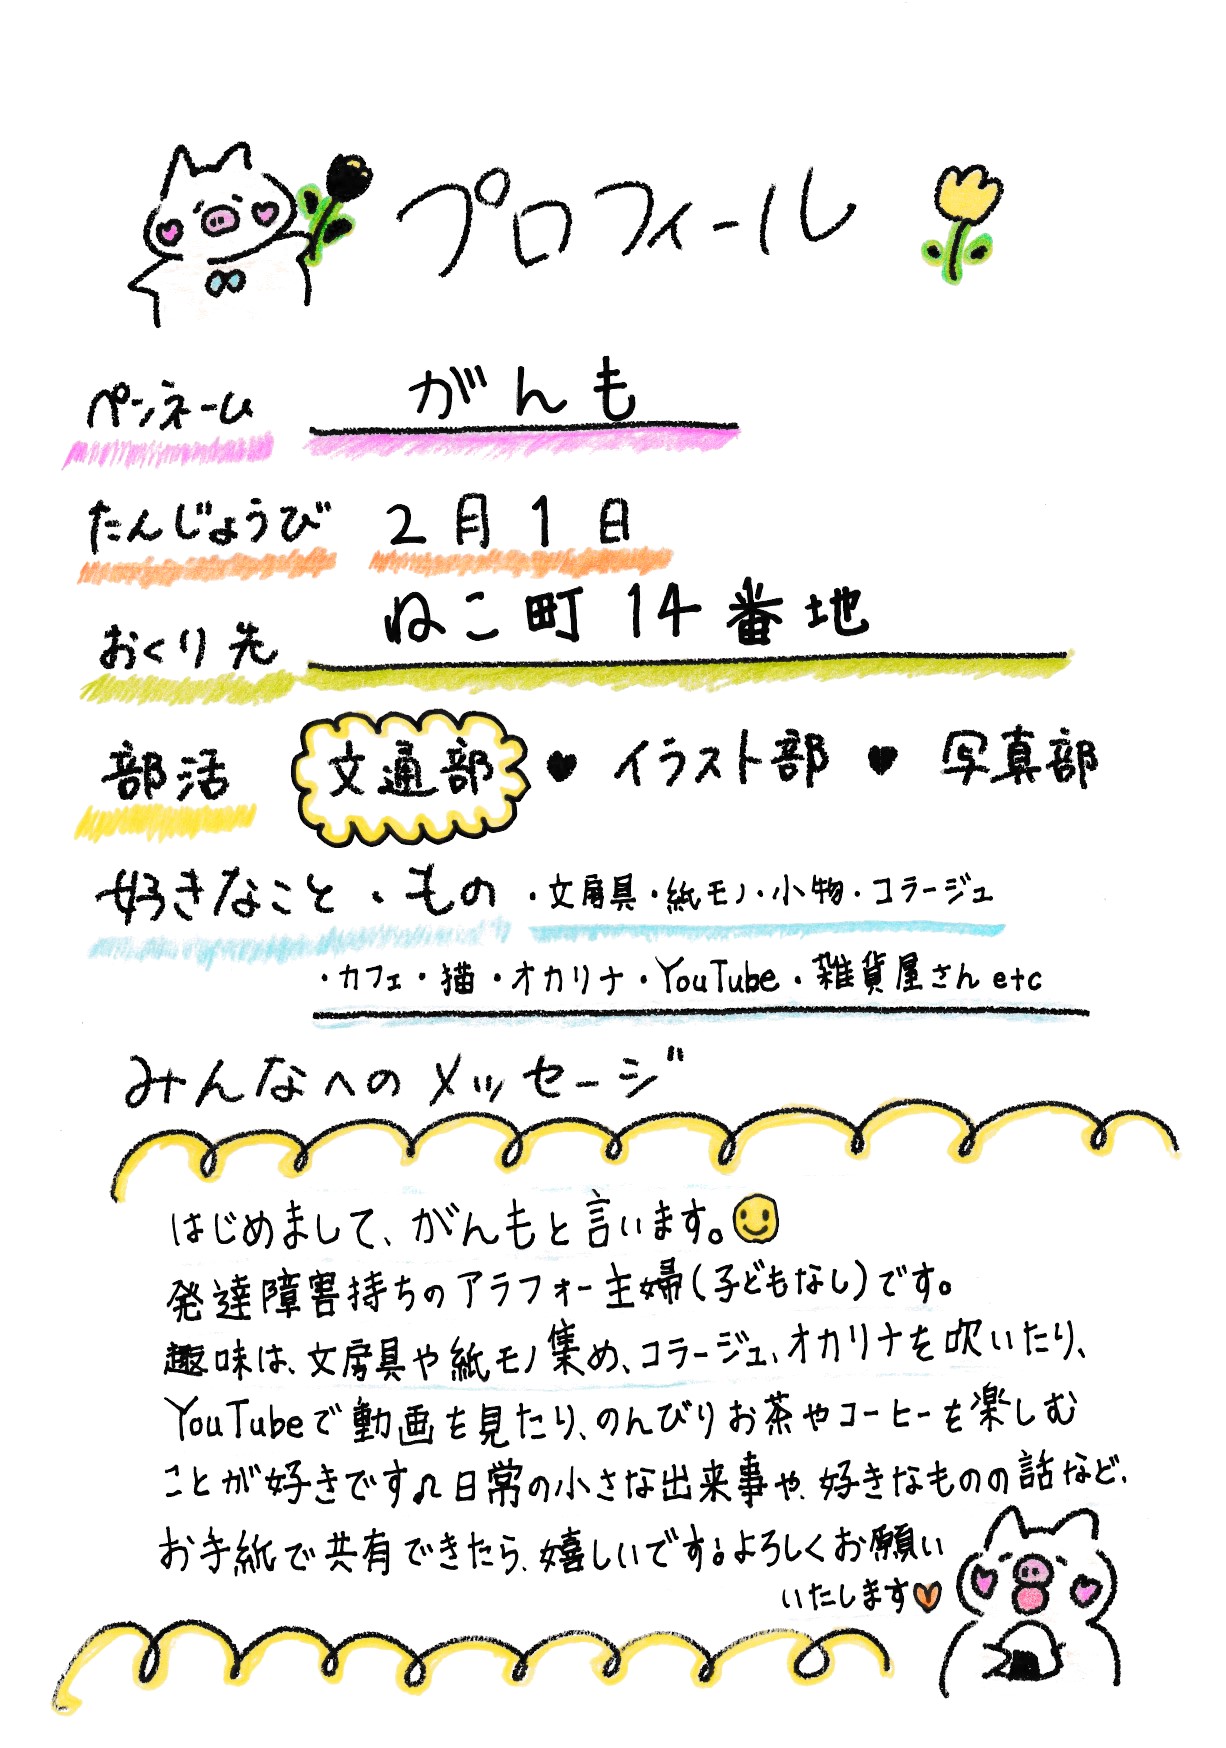 プロフィール
ペンネーム がんも
たんじょうび 2月1日
おくり先 ねこ町14番地
部活 文通部 ♥ イラスト部 ♥ 写真部
好きなこと・もの ・文房具・紙モノ・小物・コラージュ
・カフェ・猫・オカリナ・YouTube・雑貨屋さんetc
みんなへのメッセージ
はじめまして、がんもと言います。
発達障害持ちのアラフォー主婦(子どもなし)です。
趣味は、文房具や紙モノ集め、コラージュ、オカリナを吹いたり、
YouTubeで動画を見たり、のんびりお茶やコーヒーを楽しむ
ことが好きです♫日常の小さな出来事や、好きなものの話など、
お手紙で共有できたら、嬉しいです!よろしくお願い
いたします